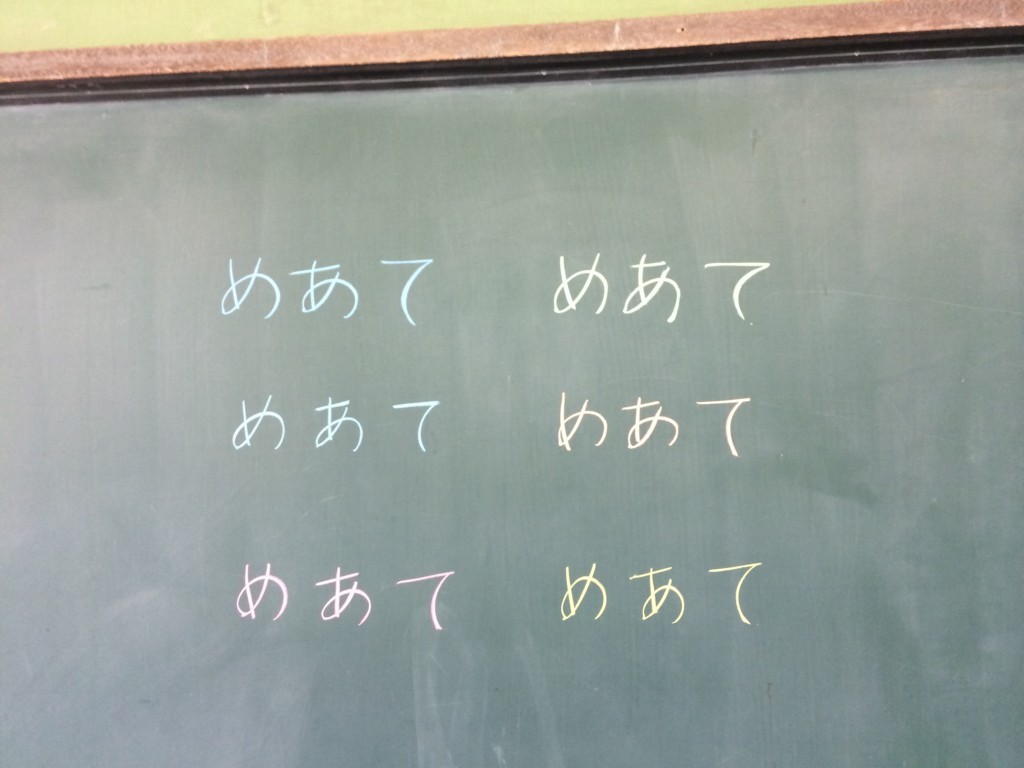 めあて めあて
めあて めあて
めあて めあて